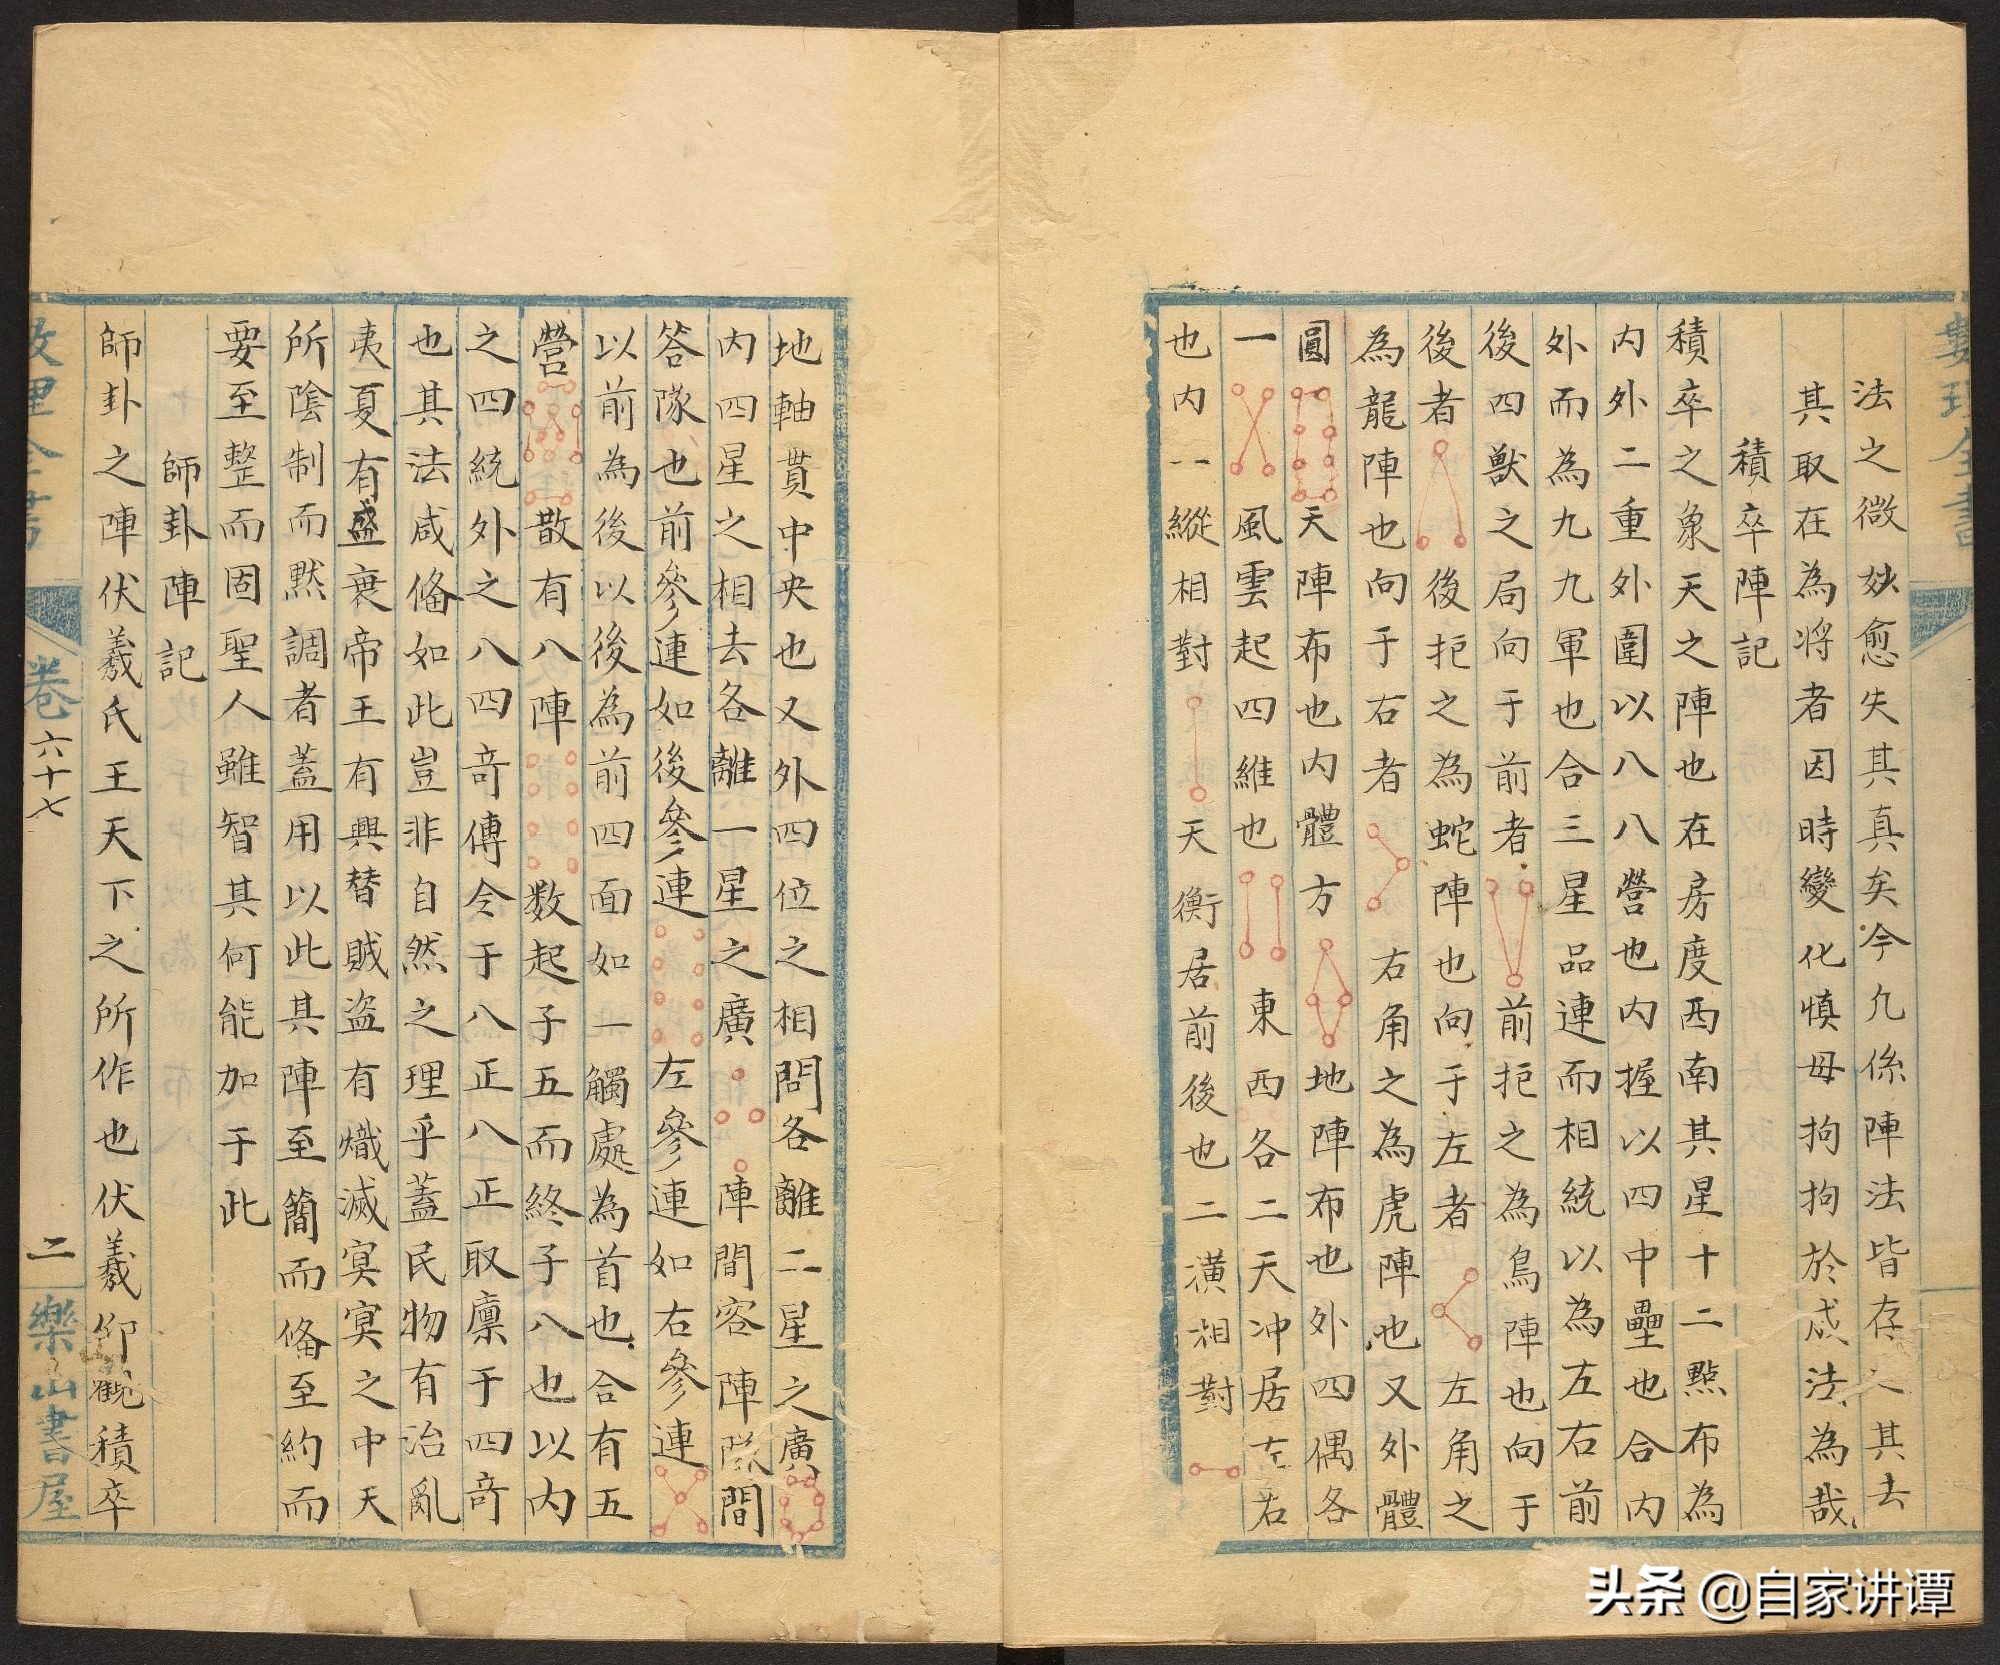 法之微妙愈失其真矣今凢係陣法皆存其去
其取在為将者因時變化慎毋拘拘於成法為哉
積卒陣記
積卒之象天之陣也在房度西南其星十二點布為
内外二重外圍以八八營也内握以四中壘也合内
外而為九九軍也合三星品連而相統以為左右前
後四獸之局向于前者前抱之為鳥陣也向于
後者後抱之為蛇陣也向于左者左角之
為龍陣也向于右者右角之為虎陣也又外體
圓天陣布也内體方地陣布也外四偶各
一風雲起四維也東西各二天冲居左右
也内一縱相對天衡居前後也二潢相對
地軸貫中央也又外四位之相問各離二星之廣
内四星之相去各離一星之廣陣間容陣隊間
答隊也前參連如後參連左參連如右參連
以前為後以後為前四面如一觸處為首也合有五
營散有八陣数起于五而終于八也以内
之四統外之八四竒傳令于八正八正取廪于四竒
也其法咸俻如此豈非自然之理乎蓋民物有治亂
夷夏有盛衰帝王有興替贼盗有熾滅冥冥之中天
所陰制而黙調者蓋用以此其陣至簡而俻至約而
要至整而固聖人雖智其何能加于此
師卦陣記
師卦之陣伏羲氏王天下之所作也伏羲仰觀積卒
卷六十七
二
樂山書屋
头条 @自家讲谭